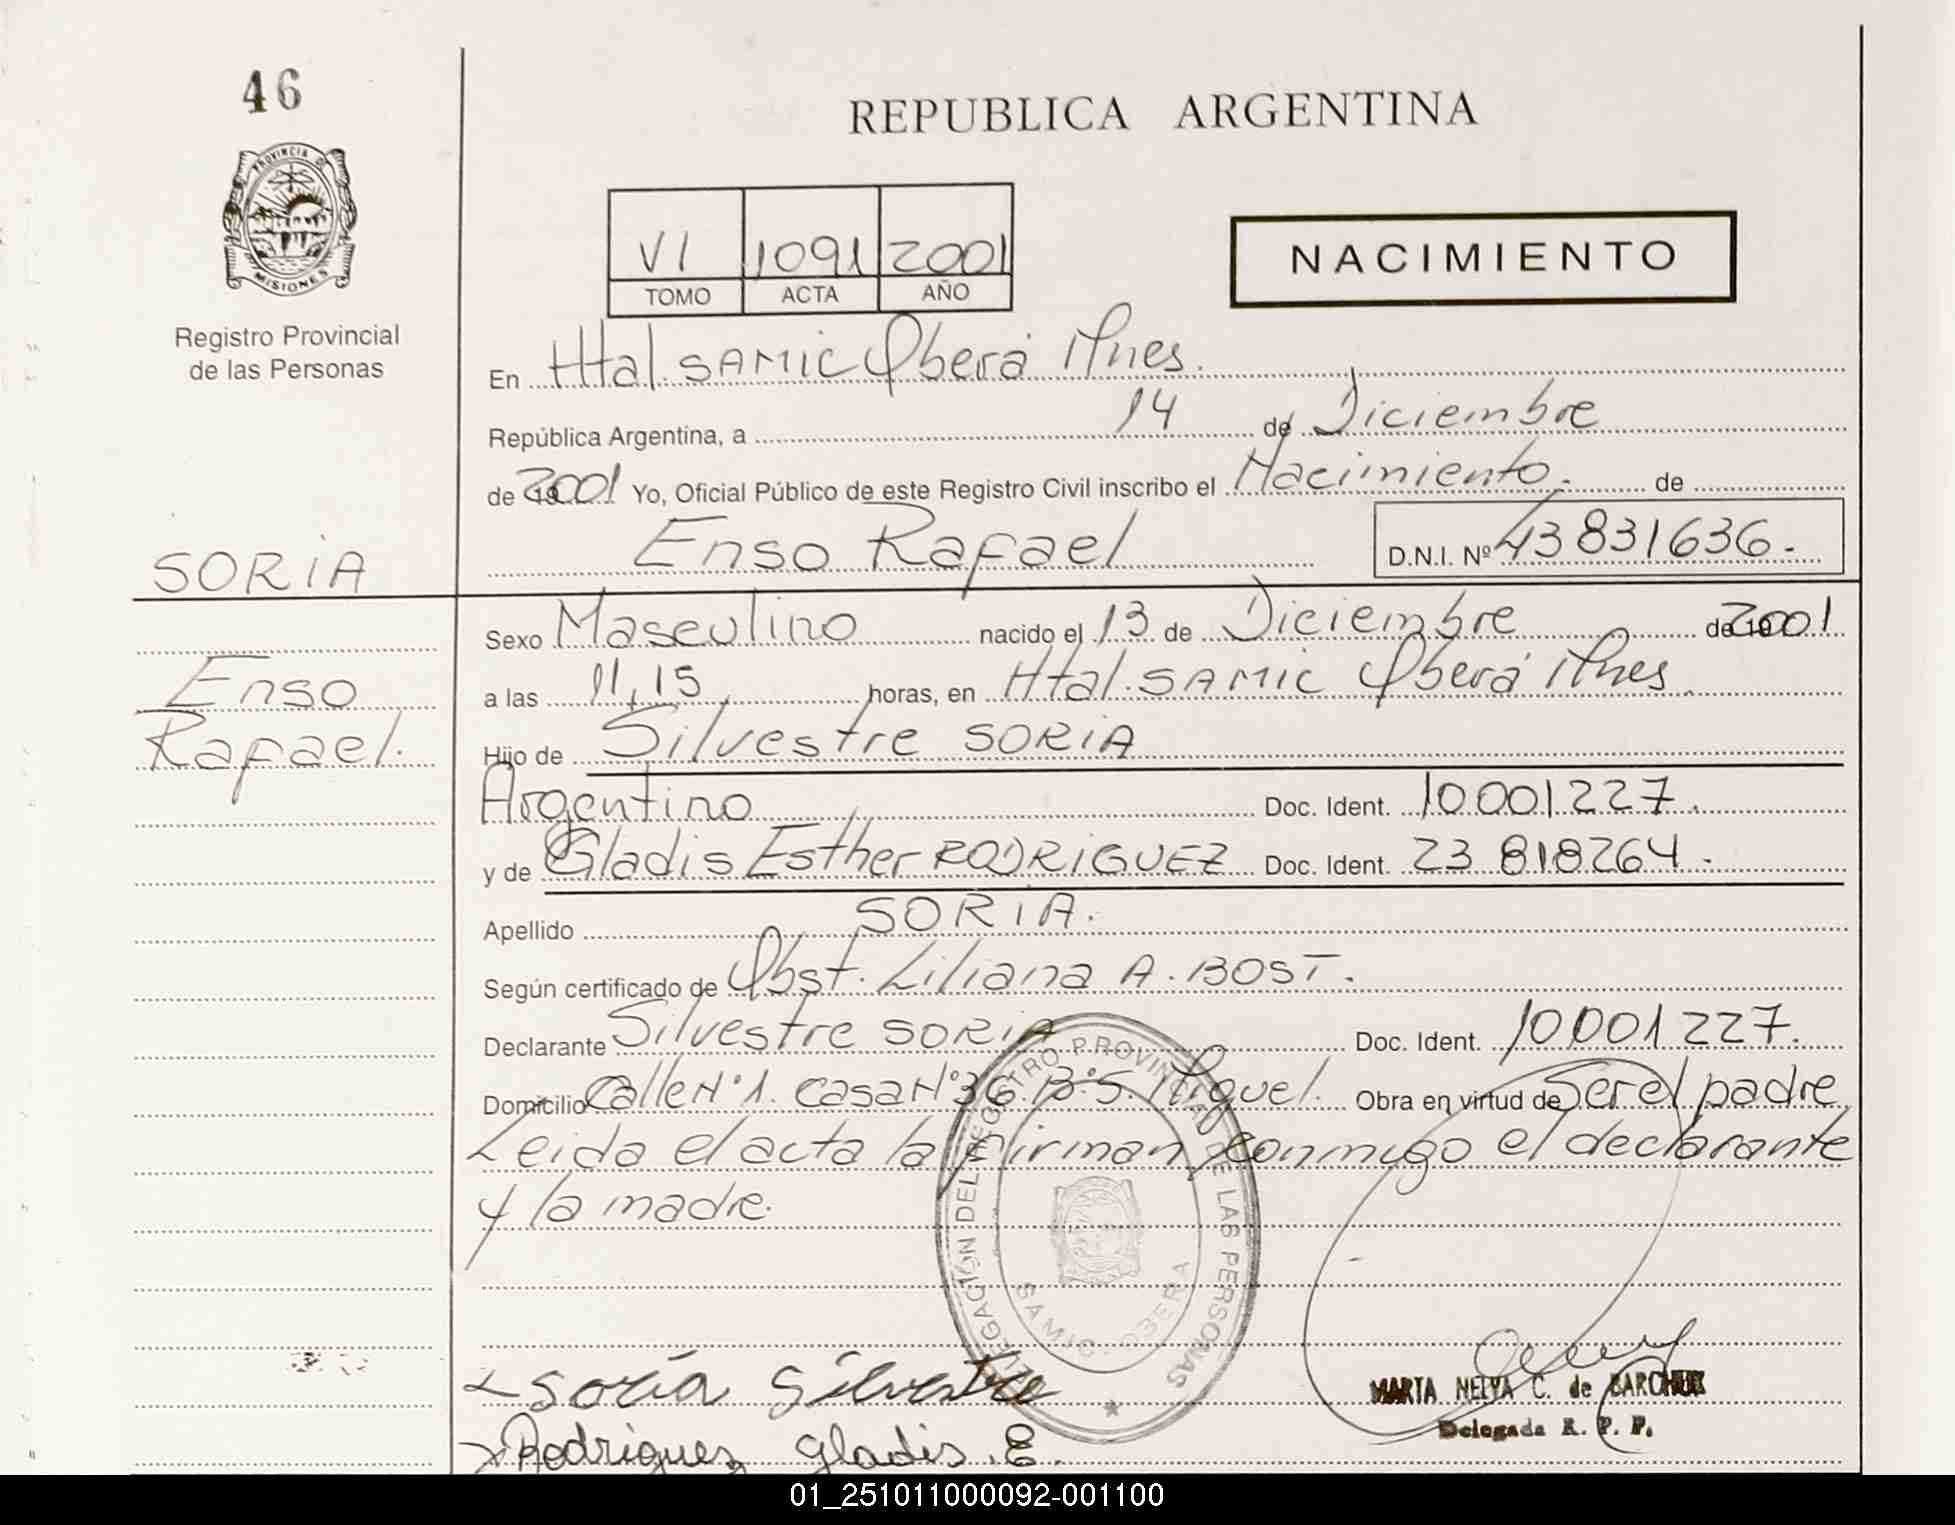 46
REPUBLICA ARGENTINA
PROVINCIA D
MISIONES
Registro Provincial
de las Personas
VI 1091 2001
TOMO ACTA AÑO
NACIMIENTO
En Htal. SAMIC Oberá Mnes.
República Argentina, a 14 de Diciembre
de 2001 Yo, Oficial Público de este Registro Civil inscribo el Nacimiento. de
Enso Rafael D.N.I. Nº 43831636.-
SORIA
Sexo Masculino nacido el 13 de Diciembre de 2001
a las 11,15 horas, en Htal. SAMIC Oberá Mnes.
Enso
Rafael.
Hijo de Silvestre SORIA
Argentino Doc. Ident. 10.001.227.
y de Gladis Esther RODRIGUEZ Doc. Ident. 23.818264.-
Apellido SORIA.
Según certificado de Obst. Liliana A. BOST.
Declarante Silvestre SORIA Doc. Ident. 10.001.227.
Domicilio Calle Nº 1. Casa Nº 36. Bº S. Miguel. Obra en virtud de Ser el padre
Leida el acta la firman conmigo el declarante
y la madre.
DELEGACIÓN DEL REGISTRO PROVINCIAL DE LAS PERSONAS
SAMIC - OBERA
Soria Silvestre
MARTA NELYA C. de
Delegada R. P. P.
Rodriguez Gladis. E.
01_251011000092-001100